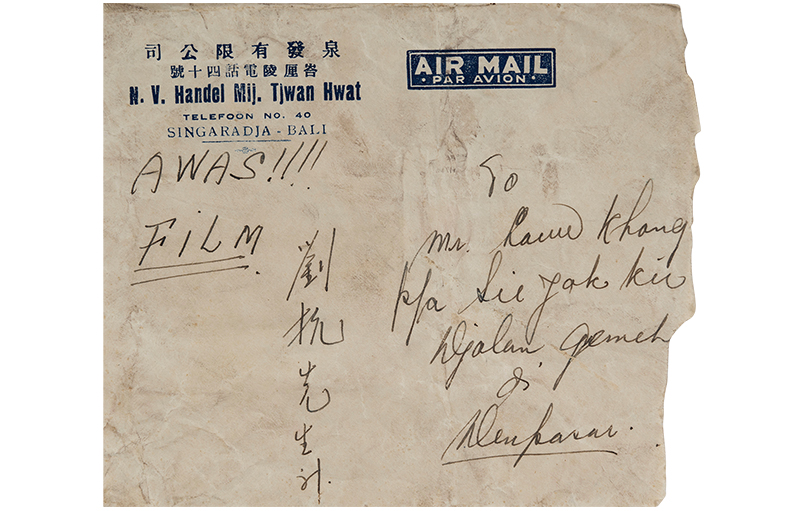 泉發有限公司
峇厘陵電話四十號
N. V. Handel Mij. Tjwan Hwat
TELEFOON NO. 40
SINGARADJA - BALI
AIR MAIL
· PAR AVION ·
AWAS!!!!
FILM.
劉抗先生
To
Mr. Lauw Khang
p/a Sie
Djalan Gemeh
di
Denpasar.